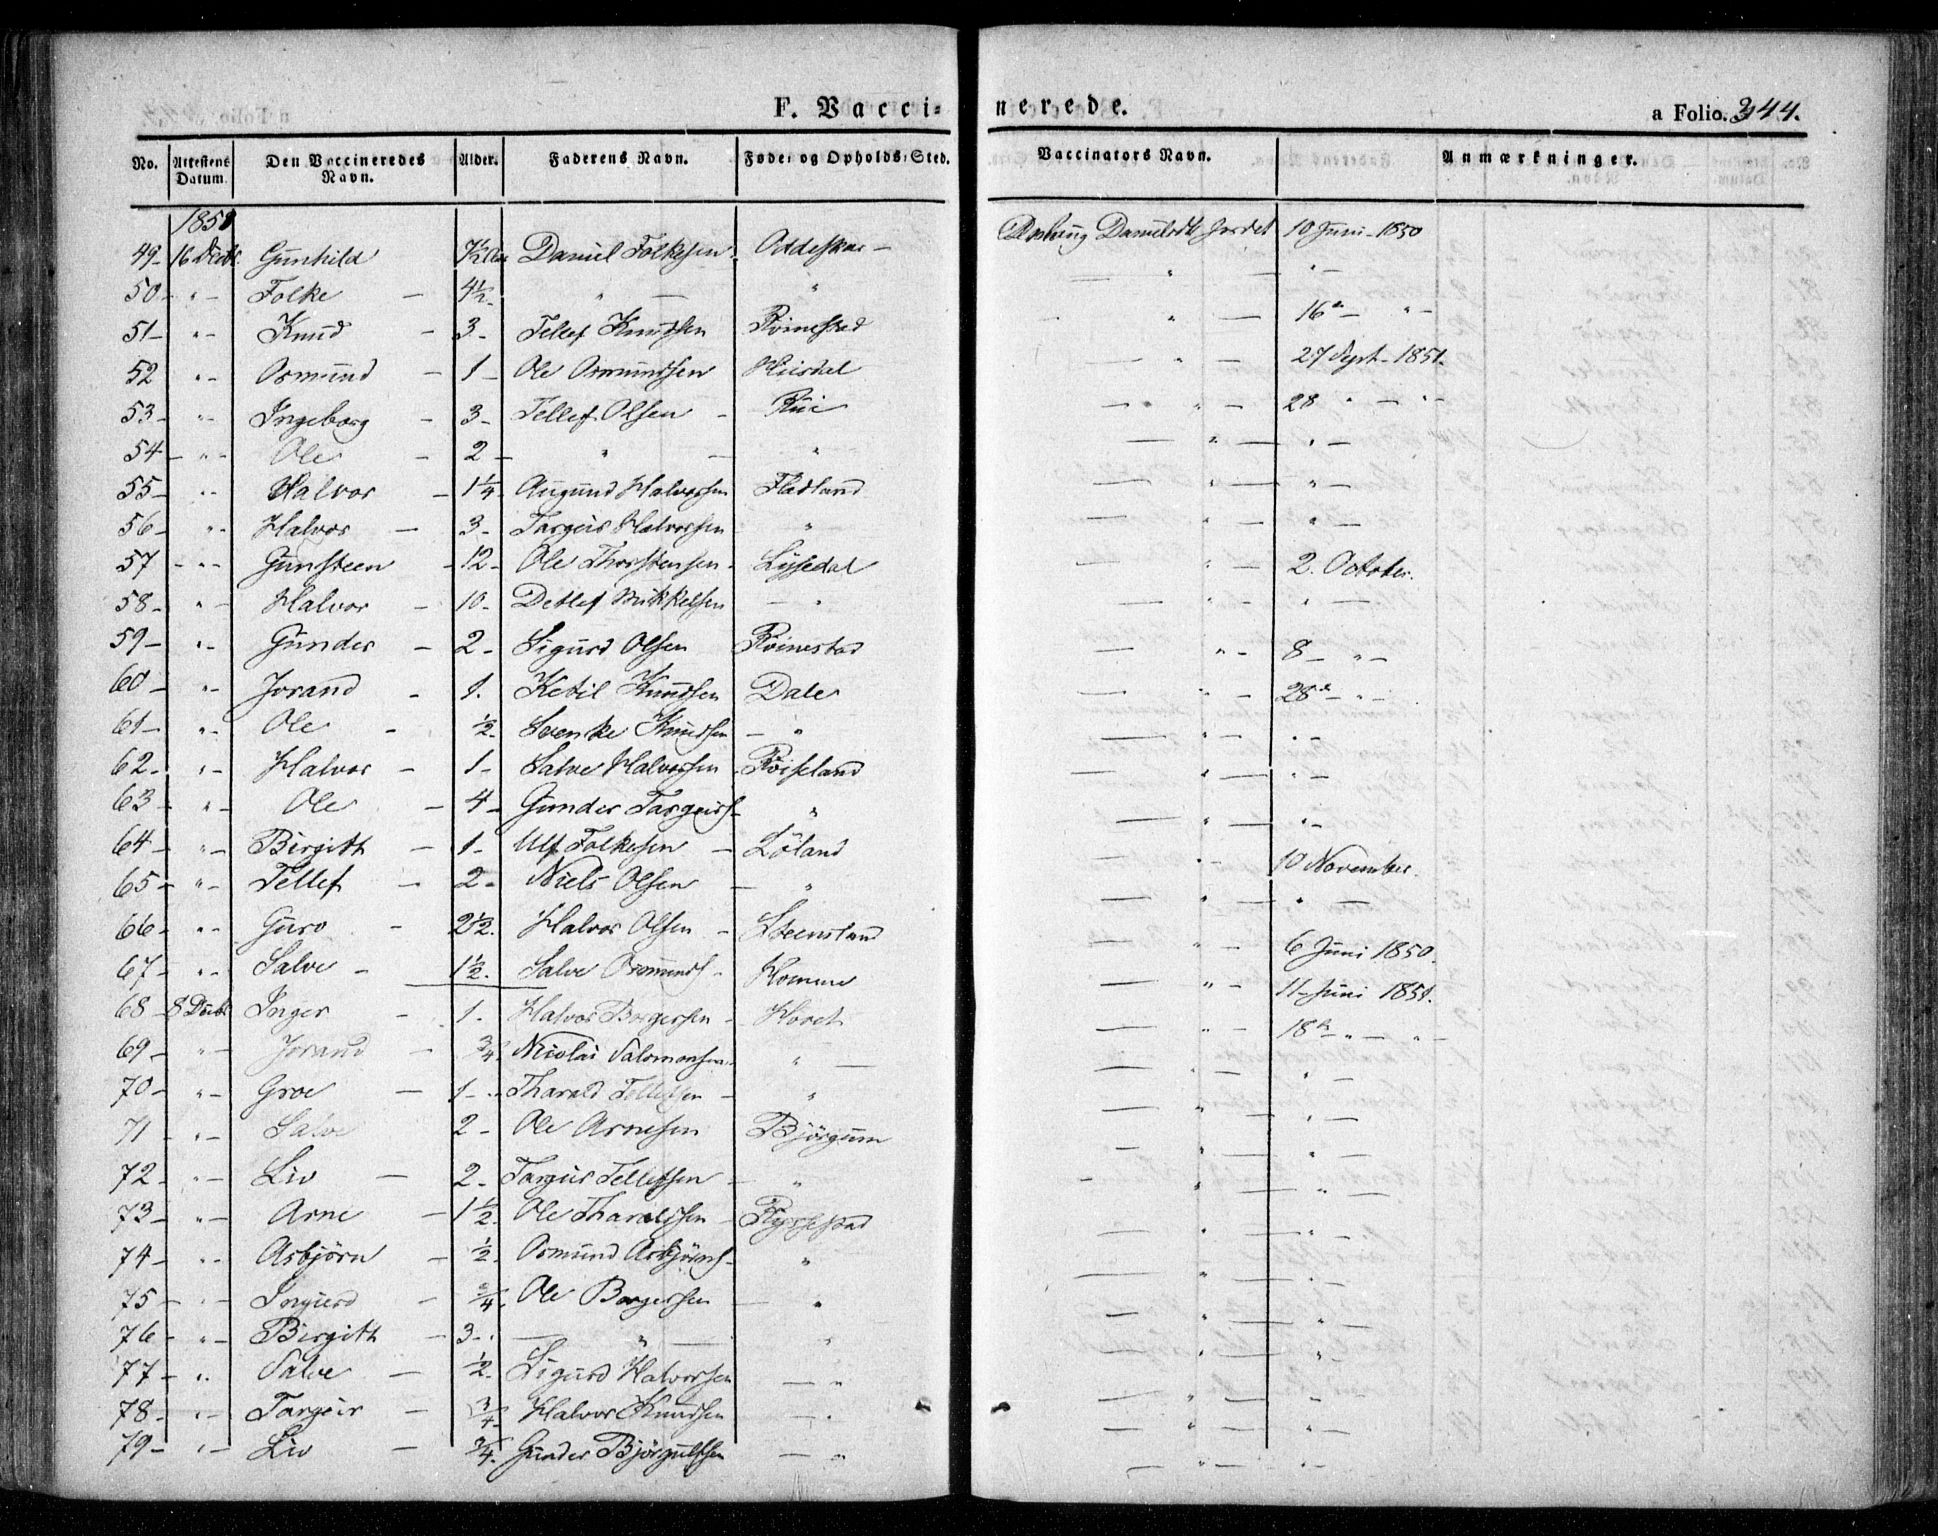 F. Vaccinerede. a Folio. 344.
No. Attestens Datum. Den Vaccineredes Navn. Alder. Faderens Navn. Føde- og Opholds-Sted. Vaccinators Navn. Anmærkninger.
1851
49 16 Decbr. Gunhild 7½ Daniel Folkesen Oddeskar Danielsdt Jordet 10 Juni 1850
50 " Folke 4½ " " " " -
51 " Knud 3 Tellef Knudsen Röinestad " 16de " -
52 " Osmund 1 Ole Osmundsen Huisdal " 27 Sept. 1851.
53 " Ingeborg 3 Tellef Olsen Rui " 28 " "
54 " Ole 2 " " " "
55 " Halvor 1¼ Augund Halvorsen Fladland " "
56 " Halvor 3 Targeir Halvorsen " " "
57 " Gunsteen 12 Ole Thorstensen Lyssedal " 2. October.
58 " Halvor 10 Detlef Mikkelsen " " "
59 " Gunder 2 Sigurd Olsen Röinestad " 8 "
60 " Jorand 1. Ketil Knudsen Dale " 28de "
61 " Ole ½ Svenke Knudsen " " "
62 " Halvor 1 Salve Halvorsen Röiseland " "
63 " Ole 4 Gunder Targeirs. " " "
64 " Birgith 1 Ulf Folkesen Löland " 10 November.
65 " Tellef 2 Niels Olsen " " "
66 " Guro 2½. Halvor Olsen Steensland " 6 Juni 1850.
67 " Salve 1½. Salve Osmunds. Homme " 11 Juni 1851.
68 8 Decbr. Inger 1. Halvor Bergersen Horet " 18de " "
69 " Jorand ¾ Nicolai Salomonsen " " "
70 " Groe 1 Tharald Tellefsen " " "
71 " Salve 2 Ole Arnesen Björgum " "
72 " Liv 2 Targeir Tellefsen " " "
73 " Arne 1½ Ole Tharaldsen Rygnestad " "
74 " Asbjörn ½ Osmund Asbjörns. " " "
75 " Ingierd ¾. Ole Borgersen " " "
76 " Birgith 3 " " " "
77 " Salve ½ Sigurd Halvorsen " " "
78 " Targeir ¾ Halvor Knudsen " " "
79 " Liv ¾. Gunder Björgulfsen " " "